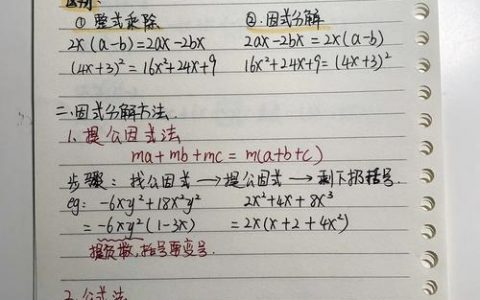 区别：
① 整式乘除 ②.因式分解
2x(a-b)=2ax-2bx 2ax-2bx=2x(a-b)
(4x+3)²=16x²+24x+9 16x²+24x+9=(4x+3)²
二.因式分解方法.
1.提公因式法
ma+mb+mc=m(a+b+c)
步骤：找公因式→提公因式→剩下扔括号.
eg: -6xy²+18x²y² 2x²+4x+8x³
=-6xy²(1-3x) =2x(x+2+4x²)
提负数,括号里变号.
2.公式法